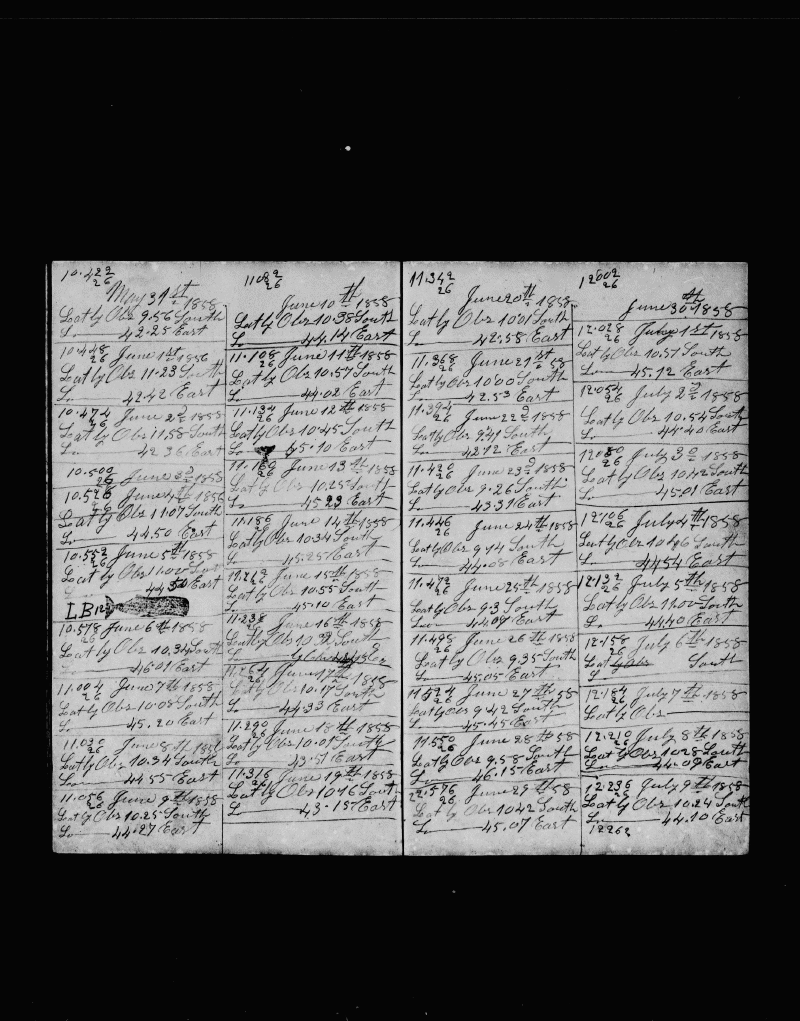 10.422
26
May 31st 1858
Lat by Obs 9.56 South
L 42.25 East
10.448 June 1st 1858
26
Lat by Obs 11.23 South
L 42.42 East
10.474 June 2d 1858
26
Lat by Obs 11.58 South
L 42 36 East
10.500 June 3d 1858
26
10.526 June 4th 1858
26
Lat by Obs 11.07 South
L 44.50 East
10.552 June 5th 1858
26
Lat by Obs 11.02
44 30 East
LB
10.578 June 6th 1858
26
Lat by Obs 10.34 South
L 46.01 East
11.004 June 7th 1858
26
Lat by Obs 10.08 South
L 45.20 East
11.030 June 8th 1858
26
Lat by Obs 10.34 South
L 44.55 East
11.056 June 9th 1858
26
Lat by Obs 10.25 South
L 44.27 East
1108
26
June 10th 1858
Lat by Obs 10.38 South
L 44.14 East
11.108 June 11th 1858
26
Lat by Obs 10.57 South
L 44.02 East
11.134 June 12th 1858
26
Lat by Obs 10.45 South
L 45.10 East
11.160 June 13th 1858
26
Lat by Obs 10.25 South
L 45 23 East
11.186 June 14th 1858
26
Lat by Obs 10.34 South
L 45.25 East
11.212 June 15th 1858
26
Lat by Obs 10.55 South
L 45.10 East
11.238 June 16th 1858
26
Lat by Obs 10.32 South
L
11.264 June 17th 1858
26
Lat by Obs 10.17 South
L 44.33 East
11.290 June 18th 1858
26
Lat by Obs 10.07 South
L 43.51 East
11.316 June 19th 1858
26
Lat by Obs 10.16 South
L 43.15 East
11.342
26
June 20th 1858
Lat by Obs 10.01 South
L 42.58 East
11.368 June 21st 58
26
Lat by Obs 10.00 South
L 42.53 East
11.394 June 22d 1858
26
Lat by Obs 9.41 South
L 42.12 East
11.420 June 23d 1858
26
Lat by Obs 9.26 South
L 43.31 East
11.446 June 24th 1858
26
Lat by Obs 9.14 South
L 44.08 East
11.472 June 25th 1858
26
Lat by Obs 9.3 South
L 44.09 East
11.498 June 26th 1858
26
Lat by Obs 9.35 South
L 45.05 East
11.524 June 27th 58
26
Lat by Obs 9.42 South
L 45.45 East
11.550 June 28th 58
26
Lat by Obs 9.58 South
L 46.15 East
11.576 June 29th 58
26
Lat by Obs 10.42 South
L 45.07 East
12002
26
June 30th 1858
12.028 July 1st 1858
26
Lat by Obs 10.57 South
L 45.12 East
12.054 July 2d 1858
26
Lat by Obs 10.54 South
L 44.40 East
12080 July 3d 1858
26
Lat by Obs 10.42 South
L 45.01 East
12.106 July 4th 1858
26
Lat by Obs 10.46 South
L 44.54 East
12.132 July 5th 1858
26
Lat by Obs 11.00 South
L 44.40 East
12.158 July 6th 1858
26
Lat by Obs South
L
12.184 July 7th 1858
26
Lat by Obs
L
12.210 July 8th 1858
26
Lat by Obs 10.28 South
L 44.09 East
12.236 July 9th 1858
26
Lat by Obs 10.24 South
L 44.10 East
12262